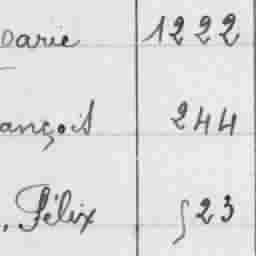 Darie 1222
ançois 244
, Félix 523